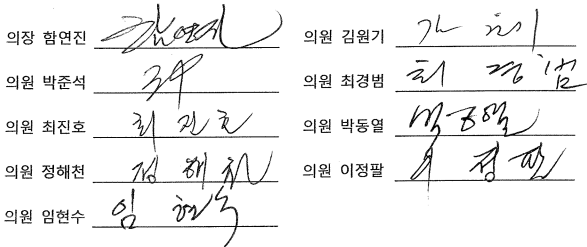 의장 함연진 함연진
의원 박준석
의원 최진호 최진호
의원 정해천 정해천
의원 임현수 임현수
의원 김원기
의원 최경범 최경범
의원 박동열 박동열
의원 이정팔 이정팔